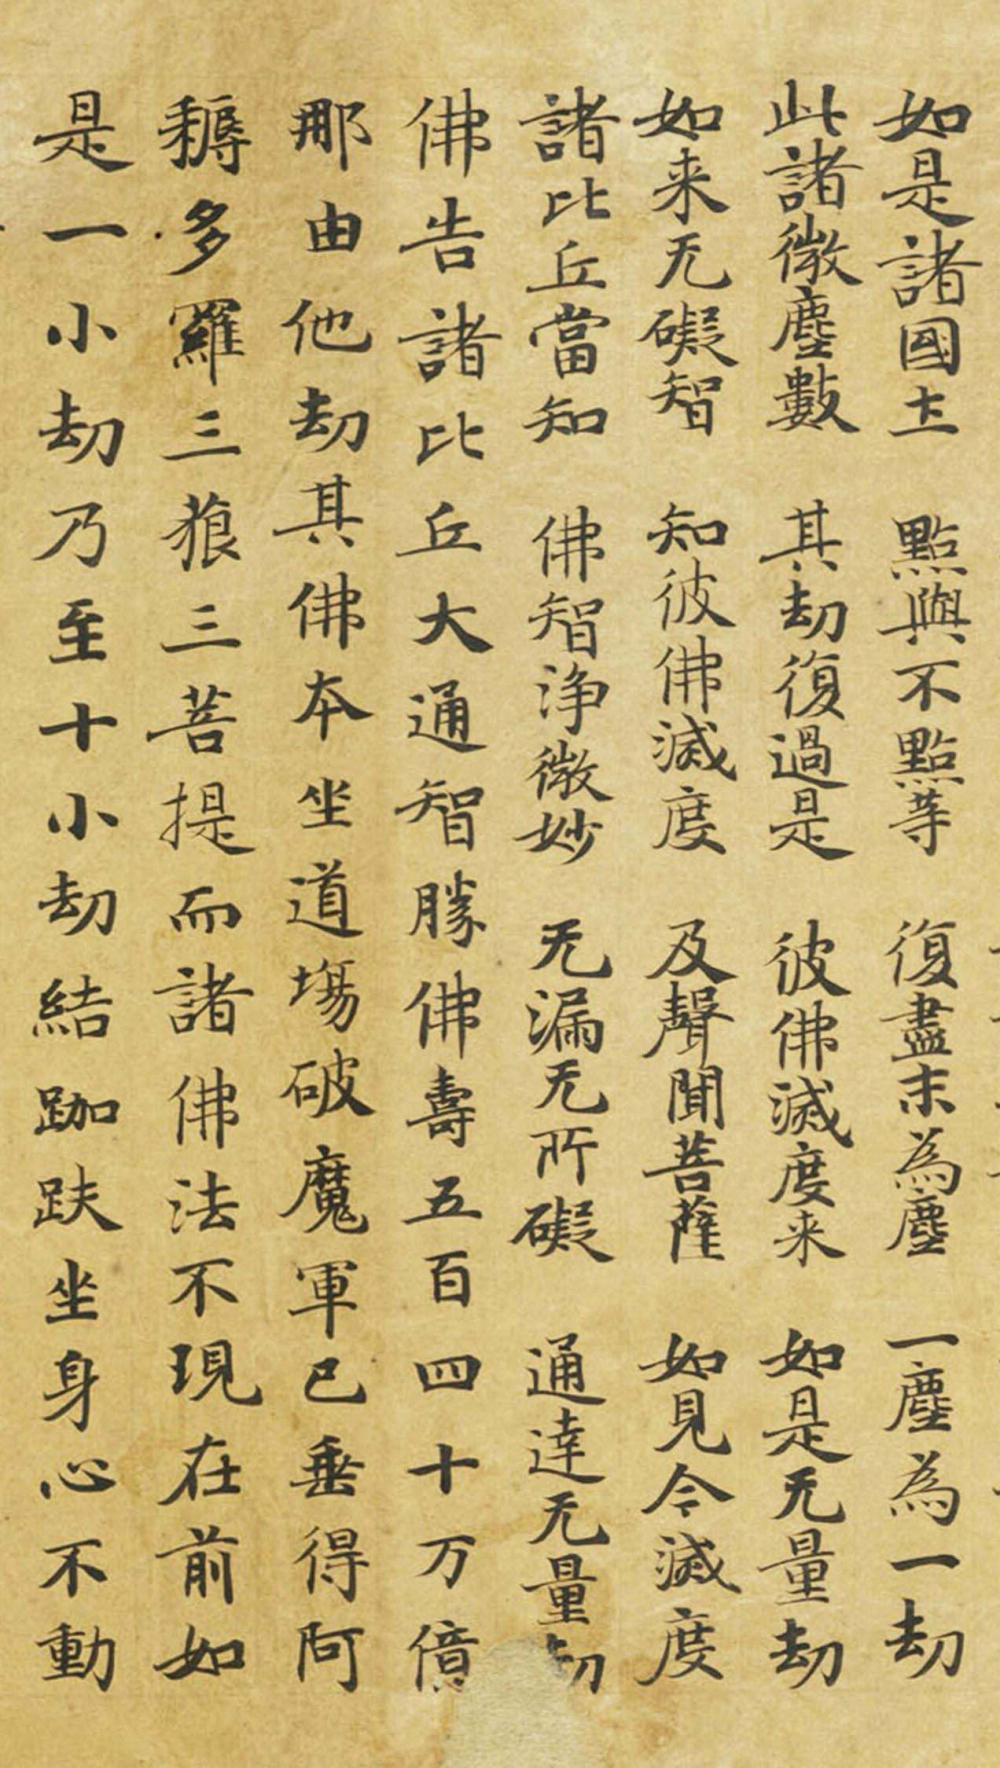 如是諸國土 點與不點等 復盡末為塵 一塵為一劫
此諸微塵數 其劫復過是 彼佛滅度来 如是无量劫
如来无礙智 知彼佛滅度 及聲聞菩薩 如見今滅度
諸比丘當知 佛智浄微妙 无漏无所礙 通達无量劫
佛告諸比丘大通智勝佛壽五百四十万億
那由他劫其佛本坐道塲破魔軍已垂得阿
耨多羅三藐三菩提而諸佛法不現在前如
是一小劫乃至十小劫結跏趺坐身心不動